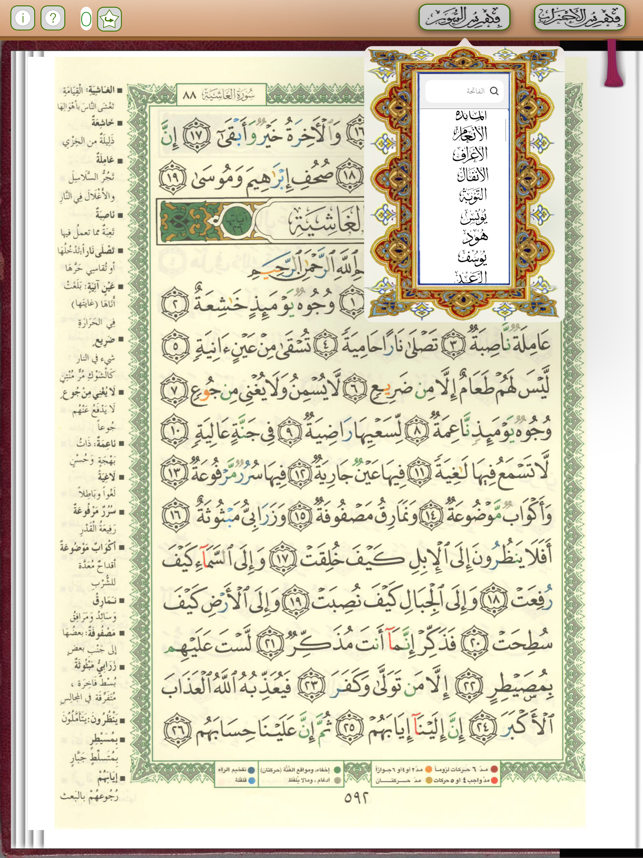 فهرس الأحزاب
فهرس السور
الفاتحة
المائدة
الأنعام
الأعراف
الأنفال
التوبة
يونس
هود
يوسف
الرعد
سُورَةُ الغَاشِيَةِ ٨٨
١٦ وَالْآخِرَةُ خَيْرٌ وَأَبْقَىٰ ١٧ إِنَّ
١٨ صُحُفِ إِبْرَاهِيمَ وَمُوسَىٰ ١٩
الغَاشِيَة
اللَّهِ الرَّحْمَٰنِ الرَّحِيمِ
١ وُجُوهٌ يَوْمَئِذٍ خَاشِعَةٌ ٢
عَامِلَةٌ نَاصِبَةٌ ٣ تَصْلَىٰ نَارًا حَامِيَةً ٤ تُسْقَىٰ مِنْ عَيْنٍ ءَانِيَةٍ ٥
لَيْسَ لَهُمْ طَعَامٌ إِلَّا مِن ضَرِيعٍ ٦ لَا يُسْمِنُ وَلَا يُغْنِي مِن جُوعٍ ٧
وُجُوهٌ يَوْمَئِذٍ نَاعِمَةٌ ٨ لِسَعْيِهَا رَاضِيَةٌ ٩ فِي جَنَّةٍ عَالِيَةٍ ١٠
لَا تَسْمَعُ فِيهَا لَاغِيَةً ١١ فِيهَا عَيْنٌ جَارِيَةٌ ١٢ فِيهَا سُرُرٌ مَرْفُوعَةٌ ١٣
وَأَكْوَابٌ مَوْضُوعَةٌ ١٤ وَنَمَارِقُ مَصْفُوفَةٌ ١٥ وَزَرَابِيُّ مَبْثُوثَةٌ ١٦
أَفَلَا يَنظُرُونَ إِلَى الْإِبِلِ كَيْفَ خُلِقَتْ ١٧ وَإِلَى السَّمَاءِ كَيْفَ
رُفِعَتْ ١٨ وَإِلَى الْجِبَالِ كَيْفَ نُصِبَتْ ١٩ وَإِلَى الْأَرْضِ كَيْفَ
سُطِحَتْ ٢٠ فَذَكِّرْ إِنَّمَا أَنتَ مُذَكِّرٌ ٢١ لَسْتَ عَلَيْهِم
بِمُصَيْطِرٍ ٢٢ إِلَّا مَن تَوَلَّىٰ وَكَفَرَ ٢٣ فَيُعَذِّبُهُ اللَّهُ الْعَذَابَ
الْأَكْبَرَ ٢٤ إِنَّ إِلَيْنَا إِيَابَهُمْ ٢٥ ثُمَّ إِنَّ عَلَيْنَا حِسَابَهُم ٢٦
الغَاشِيَةِ: الْقِيَامَةِ
تَغْشَى النَّاسَ بِأَهْوَالِهَا
خَاشِعَةٌ
ذَلِيلَةٌ مِنَ الخِزْيِ
عَامِلَةٌ
تَجُرُّ السَّلَاسِلَ
وَالأَغْلَالَ فِي النَّارِ
نَاصِبَةٌ
تَعِبَةٌ مِمَّا تَعْمَلُ فِيهَا
تَصْلَى نَارًا: تَدْخُلُهَا
أَوْ تُقَاسِي حَرَّهَا
عَيْنٍ آنِيَةٍ: بَلَغَتْ
أَنَاهَا (غَايَتَهَا)
فِي الحَرَارَةِ
ضَرِيعٍ
شَيْءٍ فِي النَّارِ
كَالشَّوْكِ مُرٍّ مُنْتِنٍ
لَا يُغْنِي مِنْ جُوعٍ
لَا يَدْفَعُ عَنْهُم
جُوعًا
نَاعِمَةٌ: ذَاتُ
بَهْجَةٍ وَحُسْنٍ
لَاغِيَةً
لَغْوًا وَبَاطِلًا
سُرُرٌ مَرْفُوعَةٌ
رَفِيعَةُ الْقَدْرِ
أَكْوَابٌ مَوْضُوعَةٌ
أَقْدَاحٌ مُعَدَّةٌ
لِلشُّرْبِ
نَمَارِقُ
وَسَائِدُ وَمَرَافِقُ
مَصْفُوفَةٌ: بَعْضُهَا
إِلَى جَنْبِ بَعْضٍ
زَرَابِيُّ مَبْثُوثَةٌ
بُسُطٌ فَاخِرَةٌ،
مُتَفَرِّقَةٌ فِي المَجَالِسِ
يَنْظُرُونَ: يَتَأَمَّلُونَ
بِمُسَيْطِرٍ
بِمُتَسَلِّطٍ جَبَّارٍ
إِيَابَهُمْ
رُجُوعَهُمْ بِالبَعْثِ
مدّ ٦ حركات لزوماً مدّ ٢ أو ٤ أو ٦ جوازاً إخفاء، ومواقع الغُنَّة (حركتان) تفخيم الراء
مدّ واجب ٤ أو ٥ حركات مدّ حركتان إدغام، وما لا يُلفَظ قلقلة
٥٩٢